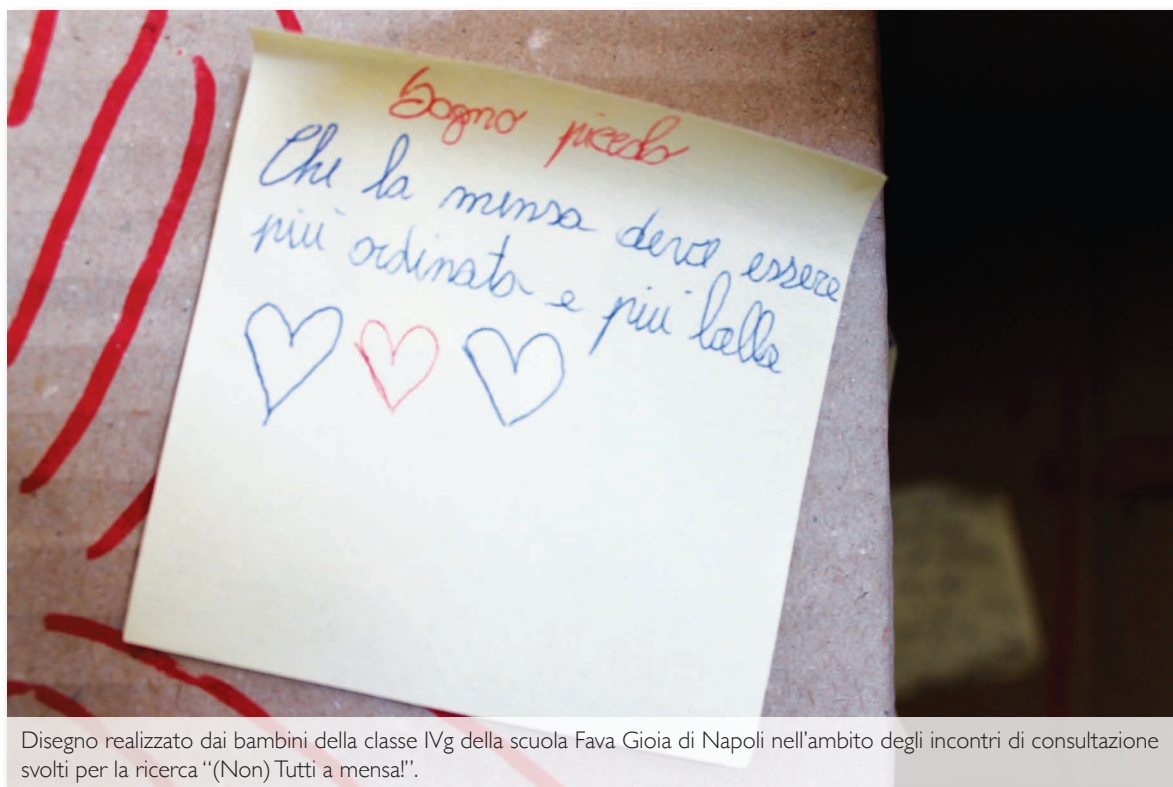 Sogno piccolo
Che la mensa deve essere
più ordinata e più bella
Disegno realizzato dai bambini della classe IVg della scuola Fava Gioia di Napoli nell'ambito degli incontri di consultazione
svolti per la ricerca “(Non) Tutti a mensa!”.